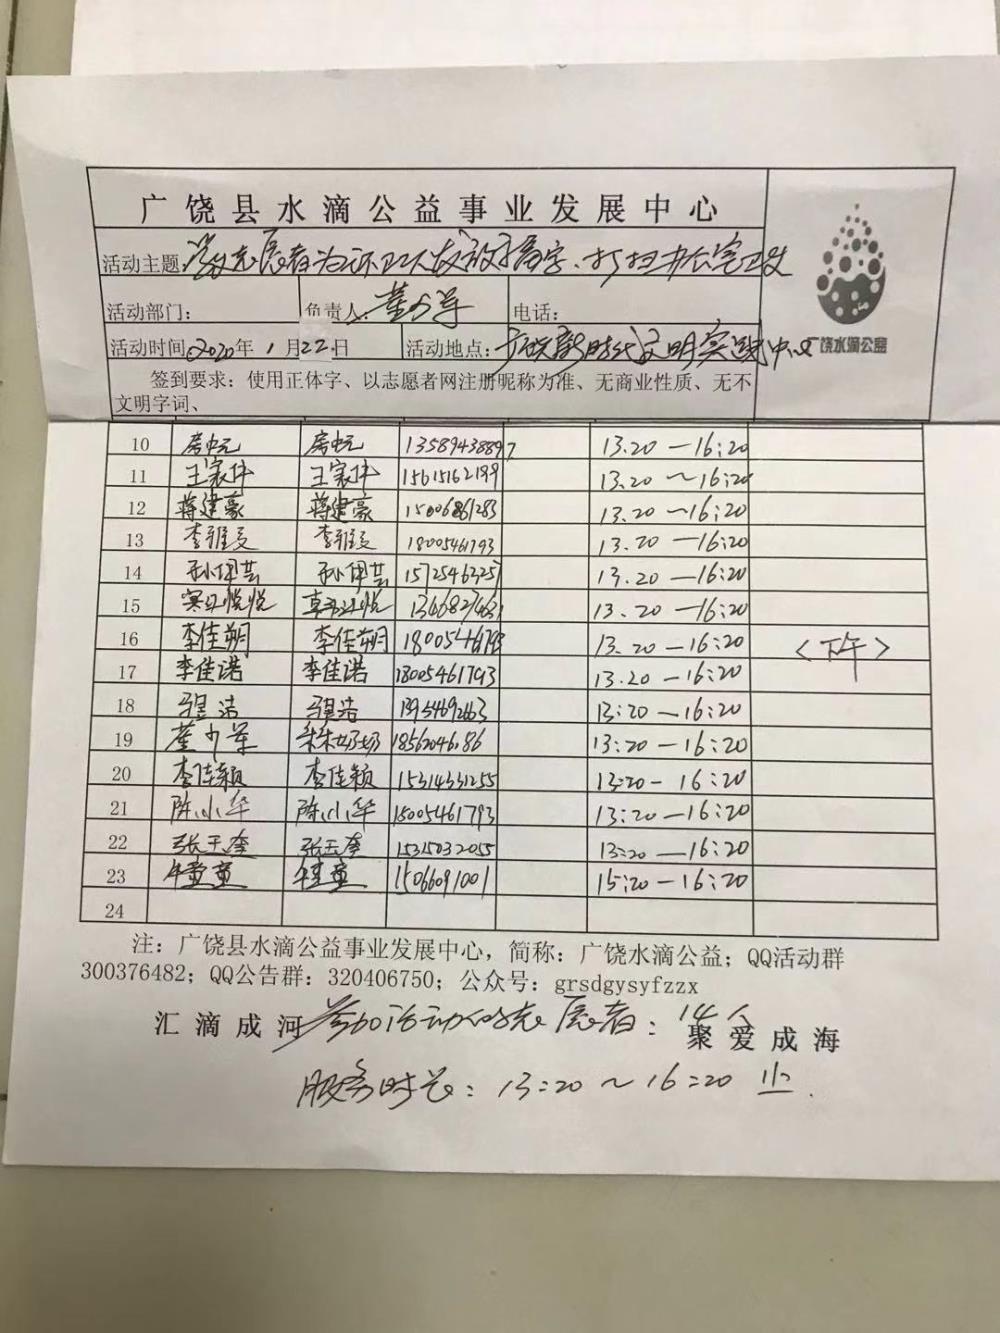 广饶县水滴公益事业发展中心
活动主题: 志愿者为环卫工发放福字、打扫办公室卫生
活动部门: 负责人: 董少军 电话:
活动时间: 2020年1月22日 活动地点: 新时代文明实践中心
饶水滴公益
签到要求: 使用正体字、以志愿者网注册昵称为准、无商业性质、无不
文明字词、
10 13589438897 13.20—16:20
11 王家伟 王家伟 15615162199 13.20~16:20
12 蒋建豪 蒋建豪 15006861283 13.20~16:20
13 18005461793 13.20—16:20
14 孙伊芸 孙伊芸 15725463257 13.20—16:20
15 13668274631 13.20—16:20
16 李佳朔 李佳朔 18005461793 13.20—16:20 <下午>
17 李佳诺 李佳诺 18005461793 13.20—16:20
18 13954692663 13:20—16:20
19 董少军 18562046186 13:20—16:20
20 李佳颖 李佳颖 15314331255 13:20—16:20
21 陈小华 陈小华 18005461793 13:20—16:20
22 张玉奎 张玉奎 15315032055 13:20—16:20
23 牛童童 牛童童 15066091001 15:20—16:20
24
注: 广饶县水滴公益事业发展中心, 简称: 广饶水滴公益; QQ活动群
300376482; QQ公告群: 320406750; 公众号: grsdgysyfzzx
汇滴成河 聚爱成海
参加活动的志愿者: 14人
服务时长: 13:20~16:20 止.